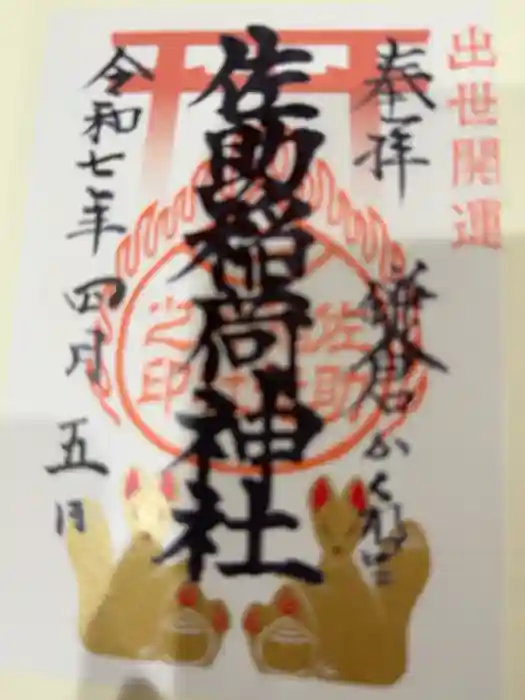 出世開運
奉拝
鎌倉かくれ里
佐助稲荷神社
佐助
之印
令和七年四月五日